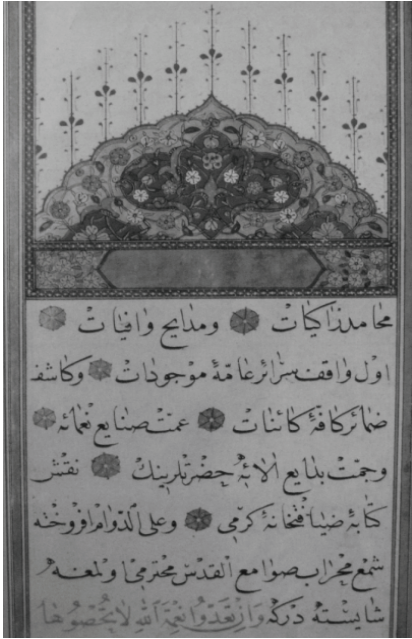 محامد زاكيات ومدايح وافيات
اول واقف سرائر عامۀ موجودات وكاشف
ضمائر كافۀ كائنات عمت صنايع نعمائه
وجمت بدايع الائه حضرتلرينك نقش
كتابۀ ضيافتخانۀ كرمى وعلى الدوام افروخته
شمع محراب صوامع القدس محترمى ولمعه
شايسته دركه وان تعدوا نعمة الله لا تحصوها